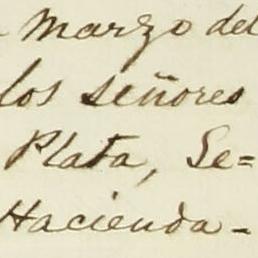 Marzo del
los señores
Plata, Se=
Hacienda-